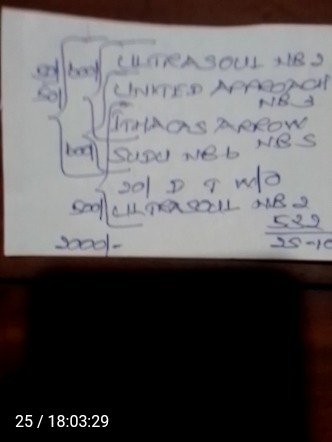 500/ ULTRASOUL NB 2
UNITED APPROACH
NB 3
ITHACAS ARROW
NB 5
SUDU NB 6
20/ D T W/O
500/ ULTRASOUL NB 2
522
2000/-
25-10
25 / 18:03:29